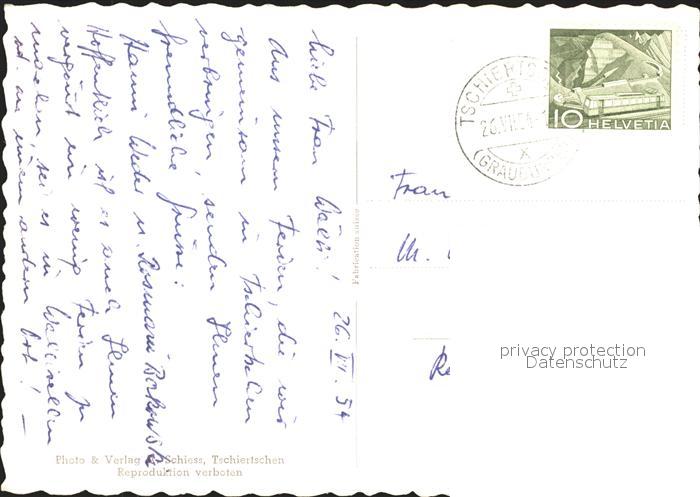 Liebe Frau Walti! 26. VII. 54
Aus unsern Ferien, die wir
gemeinsam in Tschiertschen
verbringen, senden Ihnen
freundliche Grüsse:
Hanni Weder u. Rosmarie
Hoffentlich ist es auch Ihnen
vergönnt ein wenig Ferien zu
machen, sei es in Wallisellen
od. an einem andern Ort! —
Photo & Verlag Schiess, Tschiertschen
Reproduktion verboten
Fabrication suisse
TSCHIERTSCHEN
26.VII.54
(GRAUBÜ
10 HELVETIA
Frau
privacy protection
Datenschutz